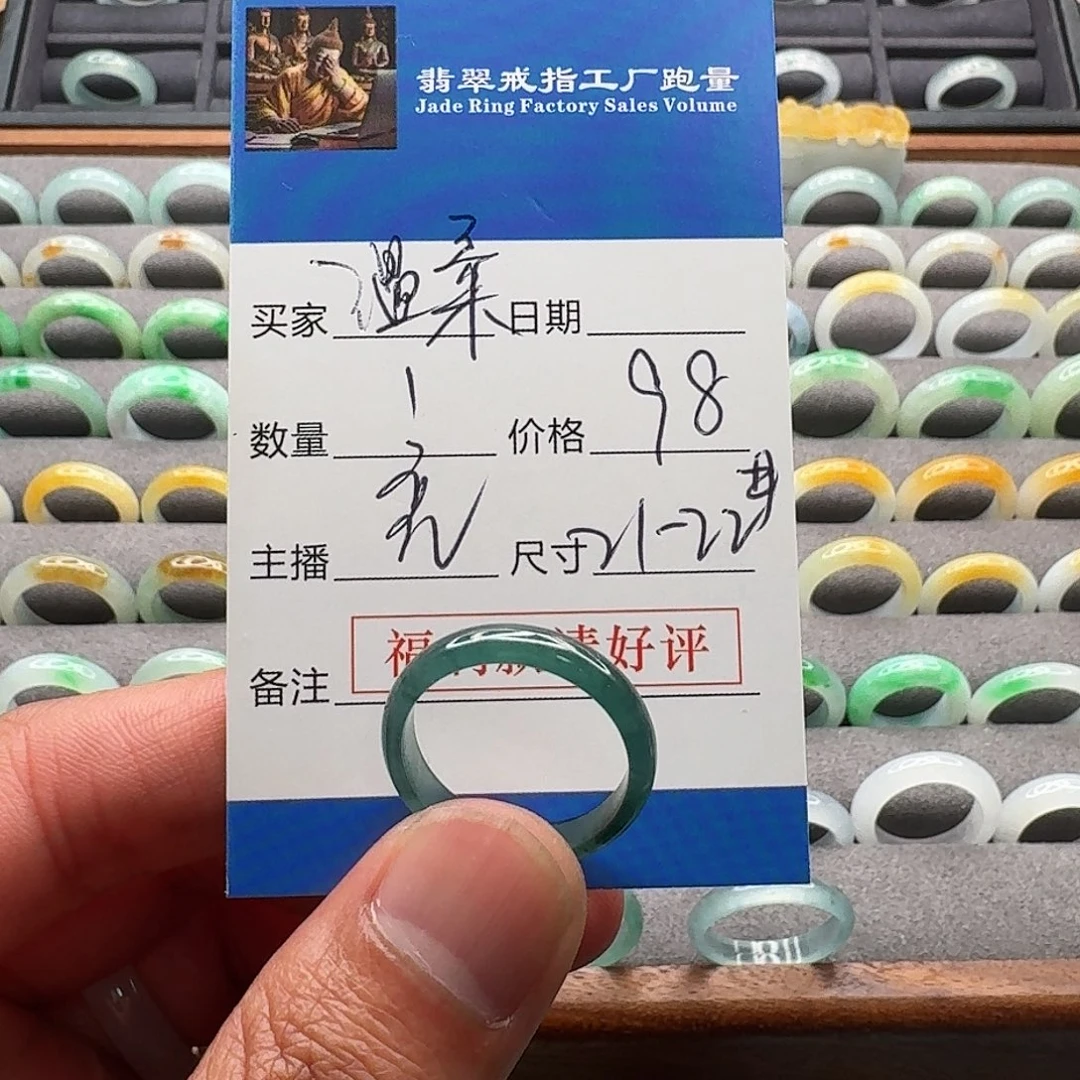 翡翠戒指工厂跑量
Jade Ring Factory Sales Volume
买家 温柔 日期
数量 1 价格 98
主播 尺寸 21-22#
福 请好评
备注